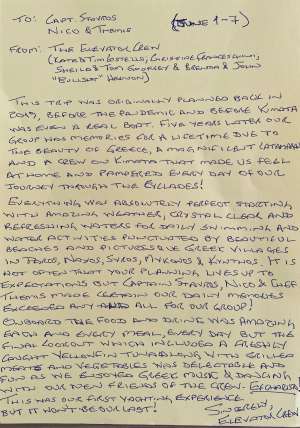 TO: CAPT. STAVROS (JUNE 1-7)
NICO & THEMIS
FROM: THE ELEVATOR CREW
(KATE & TIM COSTELLO, CHRISTINE FRANCESCHINI,
SHEILA & TOM GODFREY & BRENDA & JOHN
"BULLSET" HARMON)
THIS TRIP WAS ORIGINALLY PLANNED BACK IN
2019, BEFORE THE PANDEMIC AND BEFORE KIMATA
WAS EVEN A REAL BOAT. FIVE YEARS LATER OUR
GROUP HAS MEMORIES FOR A LIFETIME DUE TO
THE BEAUTY OF GREECE, A MAGNIFICENT CATAMARAN
AND A CREW ON KIMATA THAT MADE US FEEL
AT HOME AND PAMPERED EVERY DAY OF OUR
JOURNEY THROUGH THE CYCLADES!
EVERYTHING WAS ABSOLUTELY PERFECT STARTING
WITH AMAZING WEATHER, CRYSTAL CLEAR AND
REFRESHING WATERS FOR DAILY SWIMMING AND
WATER ACTIVITIES PUNCTUATED BY BEAUTIFUL
BEACHES AND PICTURESQUE GREEK VILLAGES
IN PAROS, NAXOS, SYROS, MYKONOS & KYTHNOS. IT IS
NOT OFTEN THAT YOUR PLANNING LIVES UP TO
EXPECTATIONS BUT CAPTAIN STAVROS, NICO & CHEF
THEMIS MADE CERTAIN OUR DAILY MEMORIES
EXCEEDED ANY AND ALL FOR OUR GROUP!
ONBOARD THE FOOD AND DRINK WAS AMAZING
EACH AND EVERY MEAL, EVERY DAY BUT THE
FINAL COOKOUT WHICH INCLUDED A FRESHLY
CAUGHT YELLOWFIN TUNA ALONG WITH GRILLED
MEATS AND VEGETABLES WAS DELECTABLE AND
FUN AS WE ENJOYED GREEK MUSIC & DANCING
WITH OUR NEW FRIENDS OF THE CREW. EFCHARISTO!
THIS WAS OUR FIRST YACHTING EXPERIENCE
BUT IT WON'T BE OUR LAST! SINCERELY,
ELEVATOR CREW